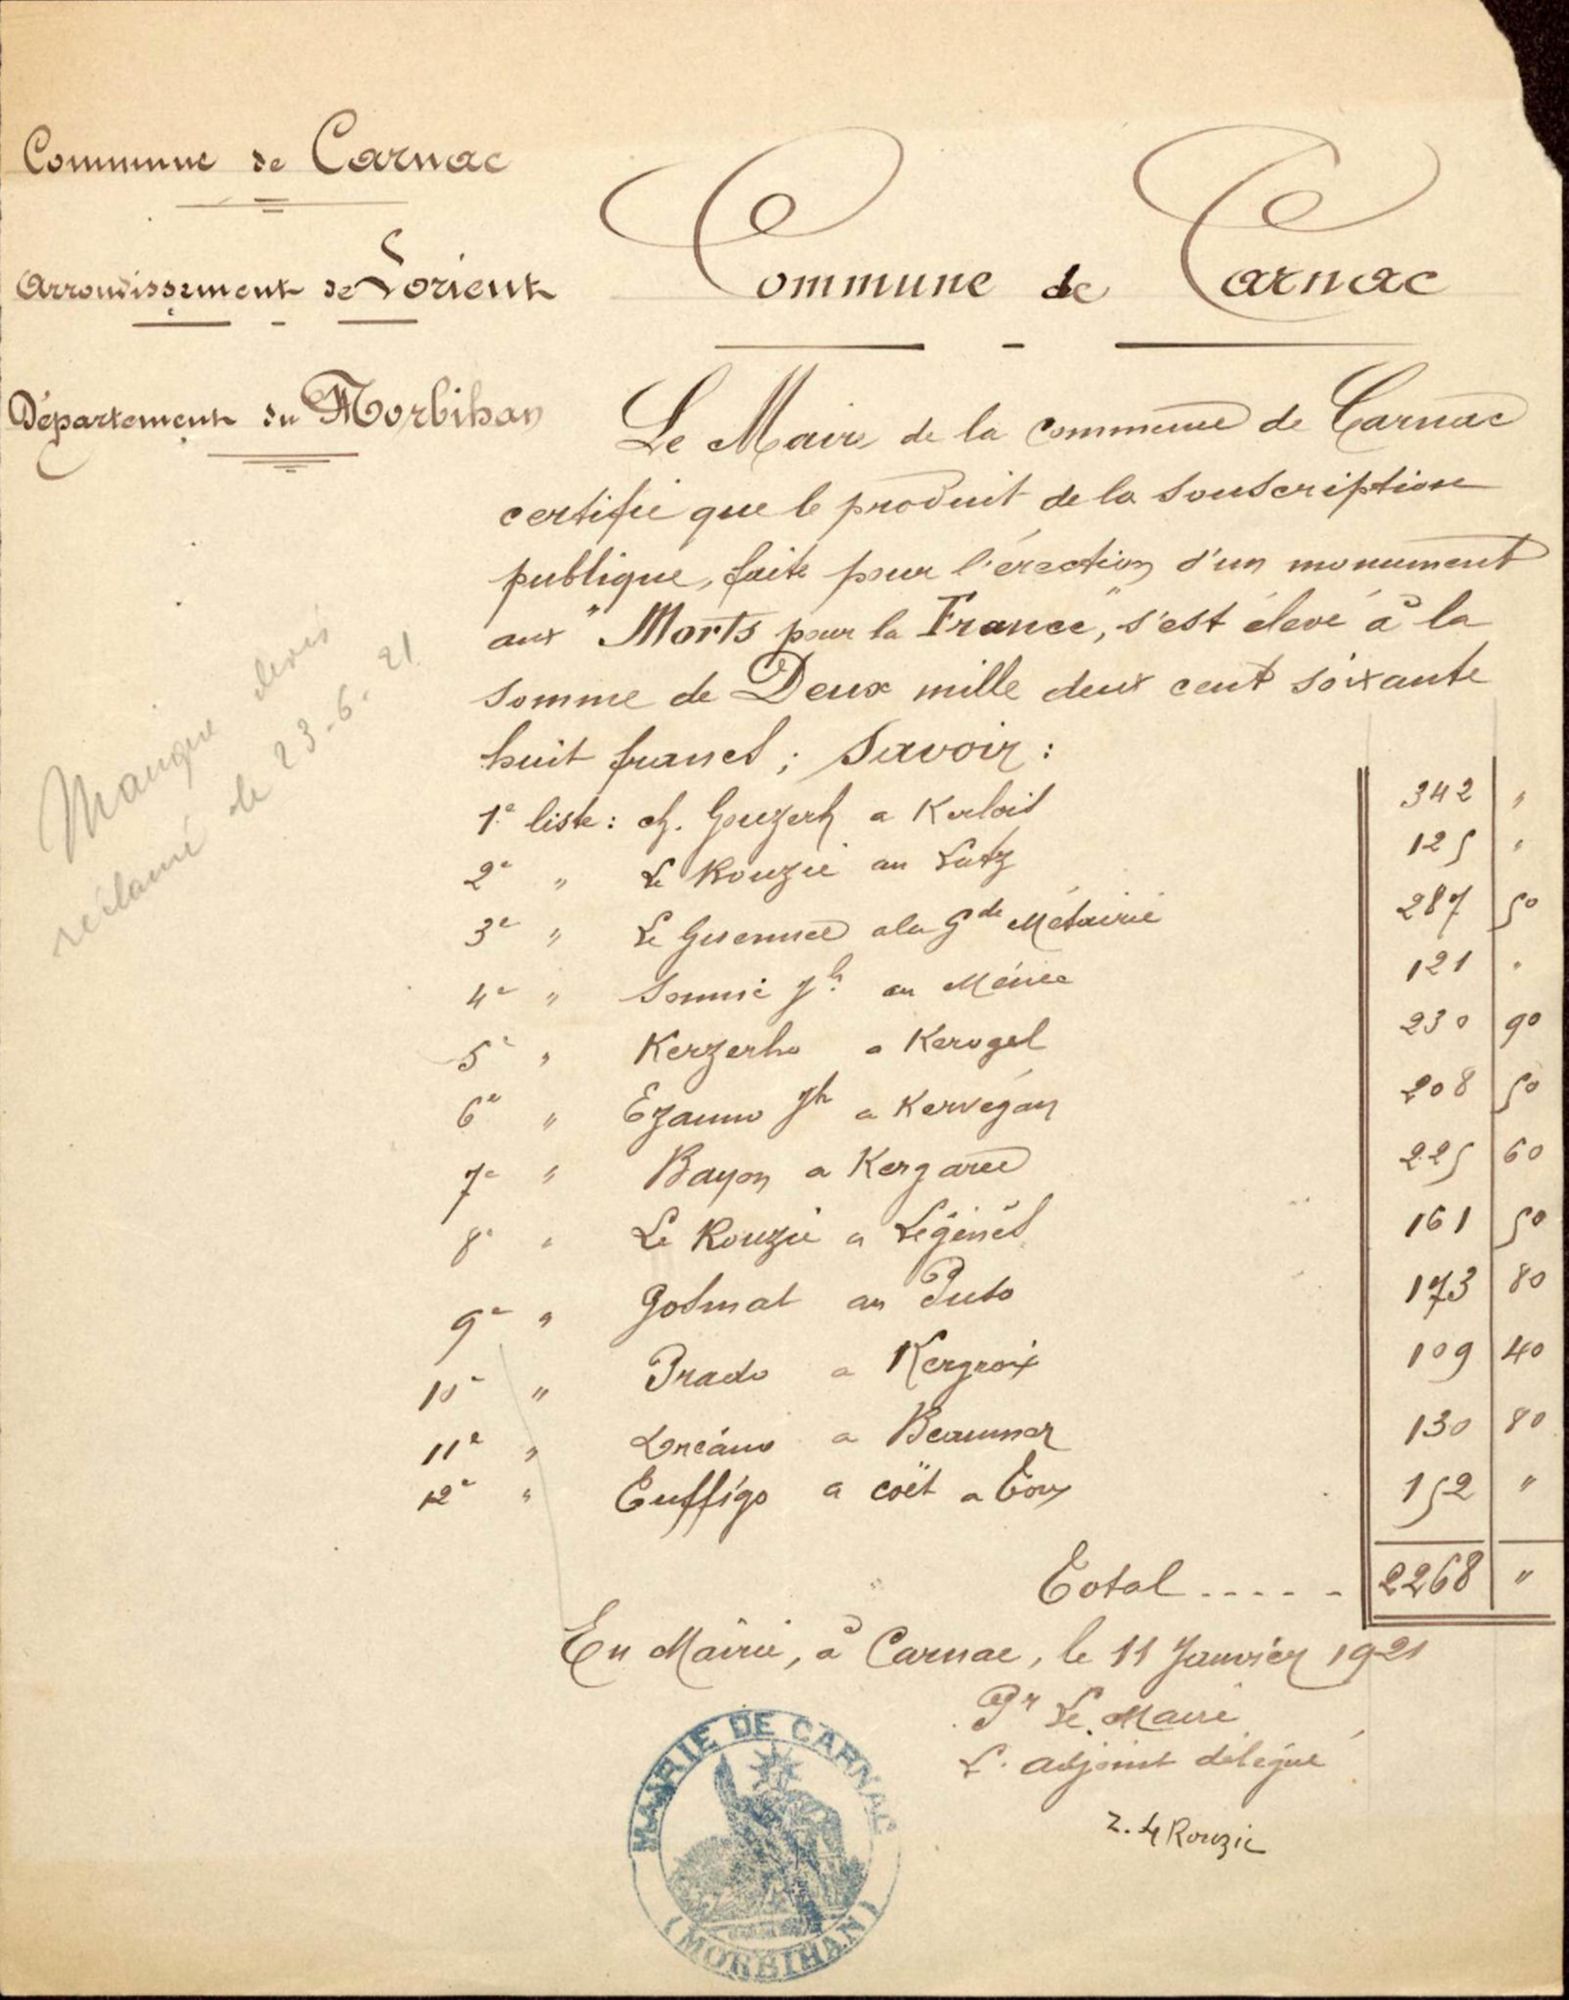 Commune de Carnac
Arrondissement de Lorient
Département du Morbihan
Commune de Carnac
Le Maire de la commune de Carnac
certifie que le produit de la souscription
publique, faite pour l'érection d'un monument
aux "Morts pour la France", s'est élevé à la
somme de Deux mille deux cent soixante
huit francs ; Savoir :
Manque devis
réclamé le 23-6-21
1e liste : ch. Gouzerh a Kerlois 342 "
2e " Le Rouzic au Latz 125 "
3e " Le Guennec a la Gde Métairie 287 50
4e " Sonnic Jh. au Ménec 121 "
5e " Kerzerho a Kerogel 230 90
6e " Ezanno Jh a Kervégan 208 50
7e " Bayon a Kergarec 225 60
8e " Le Rouzic a Légénès 161 50
9e " Golmat au Puto 173 80
10e " Prado a Kergroix 109 40
11e " Lorcano a Beaumer 130 80
12e " Tuffigo a coët a Tou 152 "
Total ..... 2268 "
En Mairie, à Carnac, le 11 Janvier 1921
Pr Le Maire
L. adjoint délégué
Z. Le Rouzic
MAIRIE DE CARNAC
(MORBIHAN)